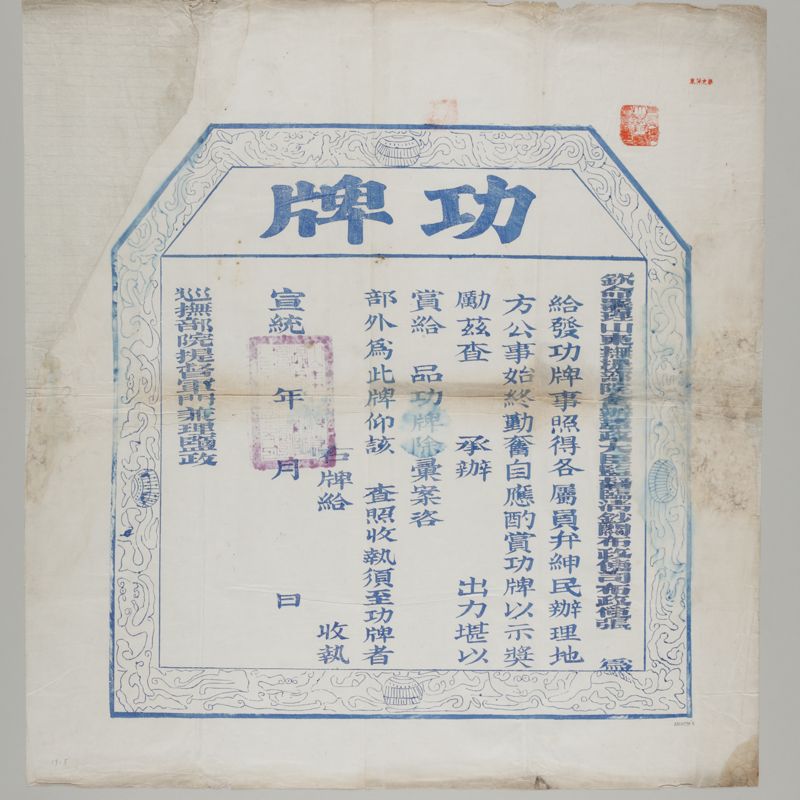 功牌
欽命 山東 撫 部院 大臣監督臨清鈔關布政使司布政使張 為
給發功牌事照得各屬員弁紳民辦理地
方公事始終勤奮自應酌賞功牌以示獎
勵茲查 承辦 出力堪以
賞給 品功牌除彙案咨
部外為此牌仰該 查照收執須至功牌者
右牌給 收執
宣統 年 月 日
巡撫部院提督軍門兼理鹽政